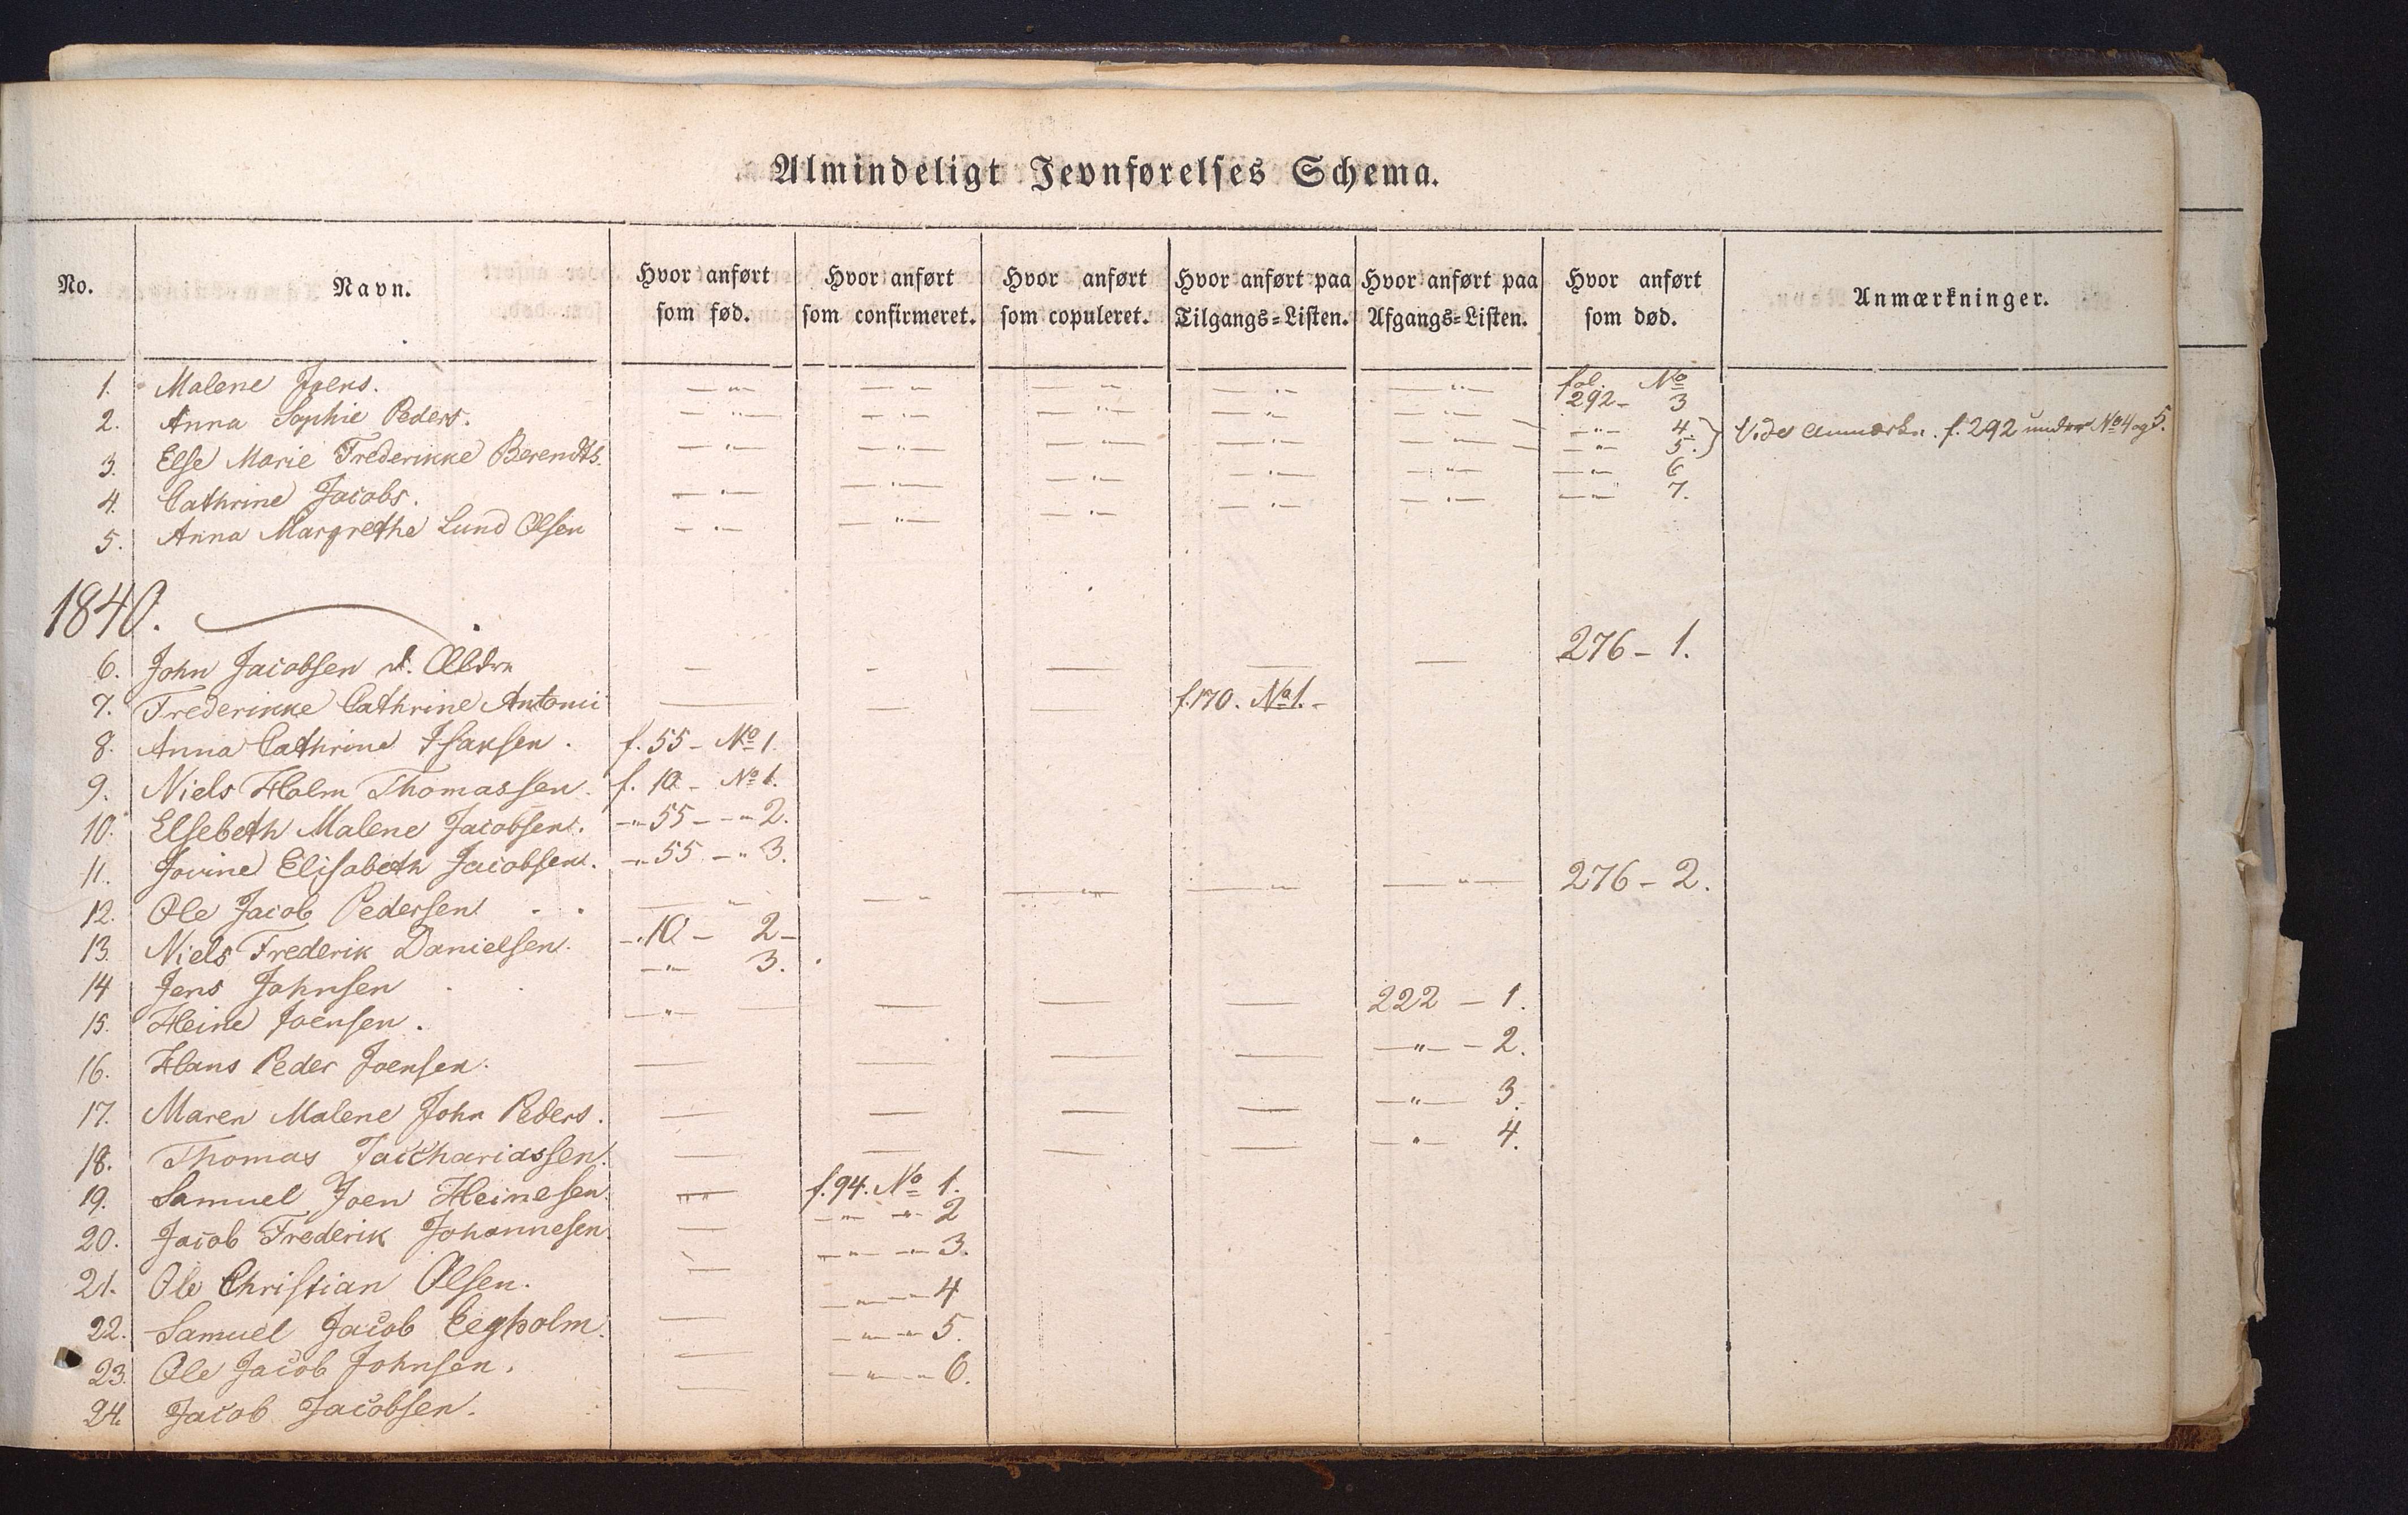 Almindeligt Jevnførelses Schema.
No. Navn. Hvor anført som fød. Hvor anført som confirmeret. Hvor anført som copuleret. Hvor anført paa Tilgangs-Listen. Hvor anført paa Afgangs-Listen. Hvor anført som død. Anmærkninger.
1. Malene Joens. — " — — " — — " — — " — — " — fol. 292 - No 3
2. Anna Sophie Peders. — " — — " — — " — — " — — " — — " — 4.
3. Else Marie Frederikke Berendts. — " — — " — — " — — " — — " — — " — 5. } Vide Anmærkn. f. 292 under No 4 og 5.
4. Cathrine Jacobs. — " — — " — — " — — " — — " — — " — 6
5. Anna Margrethe Lund Olsen — " — — " — — " — — " — — " — — " — 7.
1840.
6. John Jacobsen d. Ældre — — — — — 276 - 1.
7. Frederikke Cathrine Antonii — — — f. 170. No 1. -
8. Anna Cathrine Isaksen. f. 55 - No 1.
9. Niels Holm Thomassen. f. 10 - No 1.
10. Elsebeth Malene Jacobsen. - " - 55 - - " - 2.
11. Jovine Elisabeth Jacobsen. - " - 55 - " 3.
12. Ole Jacob Pedersen — " — " — " — " — " — 276 - 2.
13. Niels Frederik Danielsen. - " 10 - 2 -
14 Jens Johnsen — " — 3.
15. Heine Joensen. — " — — — — 222 - 1.
16. Hans Peder Joensen. — — — — — " — - 2.
17. Maren Malene John Peders. — — — — — " — 3.
18. Thomas Zacchariassen. — — — — — " — 4.
19. Samuel Joen Heinesen. — f. 94. No 1.
20. Jacob Frederik Johannesen — — " — - " - 2
21. Ole Christian Olsen. — — " — - " - 3.
22. Samuel Jacob Eegholm. — — " — - 4
23. Ole Jacob Johnsen. — — " — " - 5.
24. Jacob Jacobsen. — — " — " - 6.